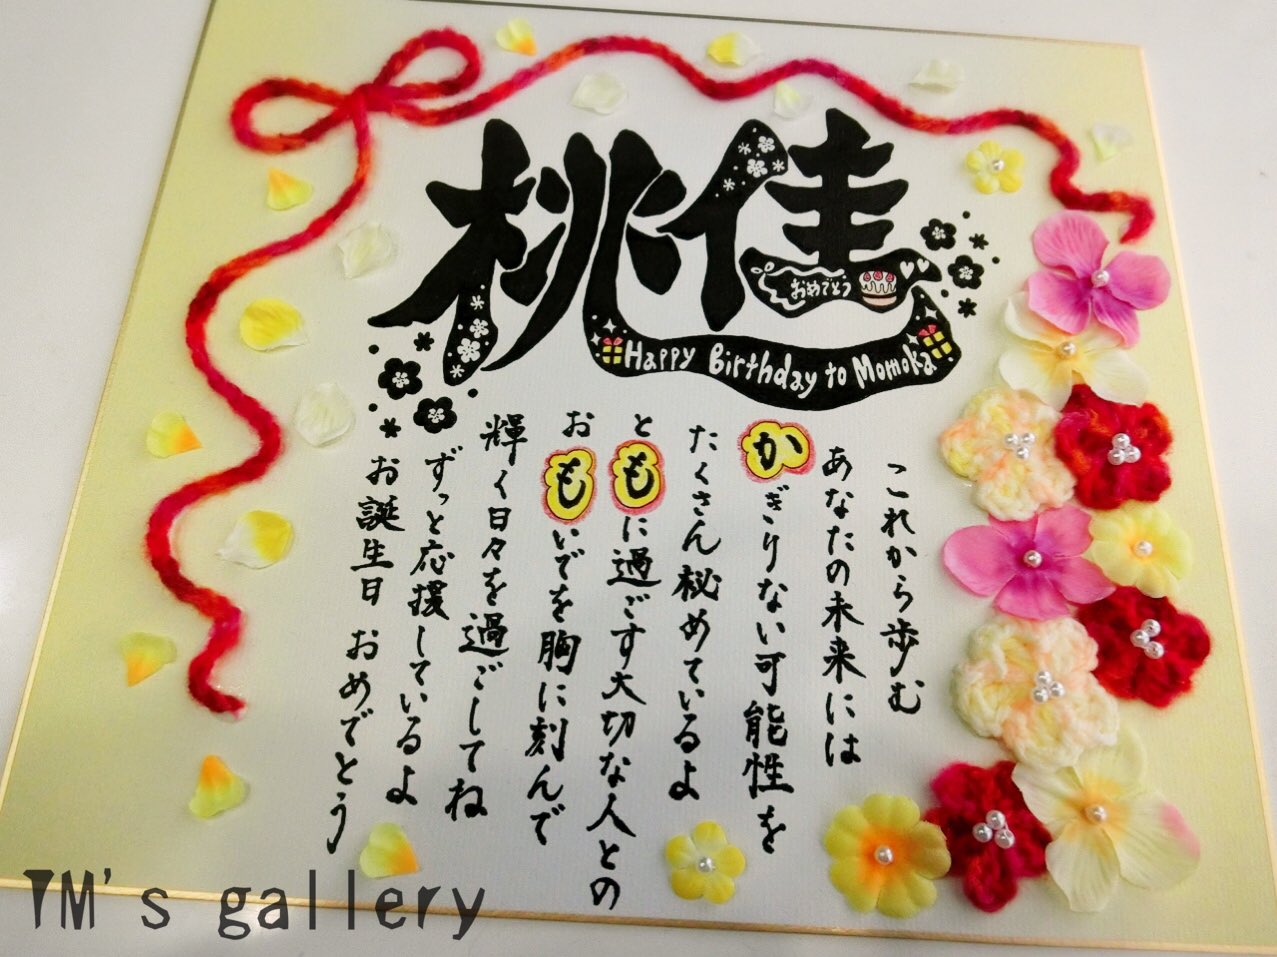 桃佳
おめでとう
Happy Birthday to Momoka
これから歩む
あなたの未来には
かぎりない可能性を
たくさん秘めているよ
ともに過ごす大切な人との
おもいでを胸に刻んで
輝く日々を過ごしてね
ずっと応援しているよ
お誕生日 おめでとう
TM's gallery